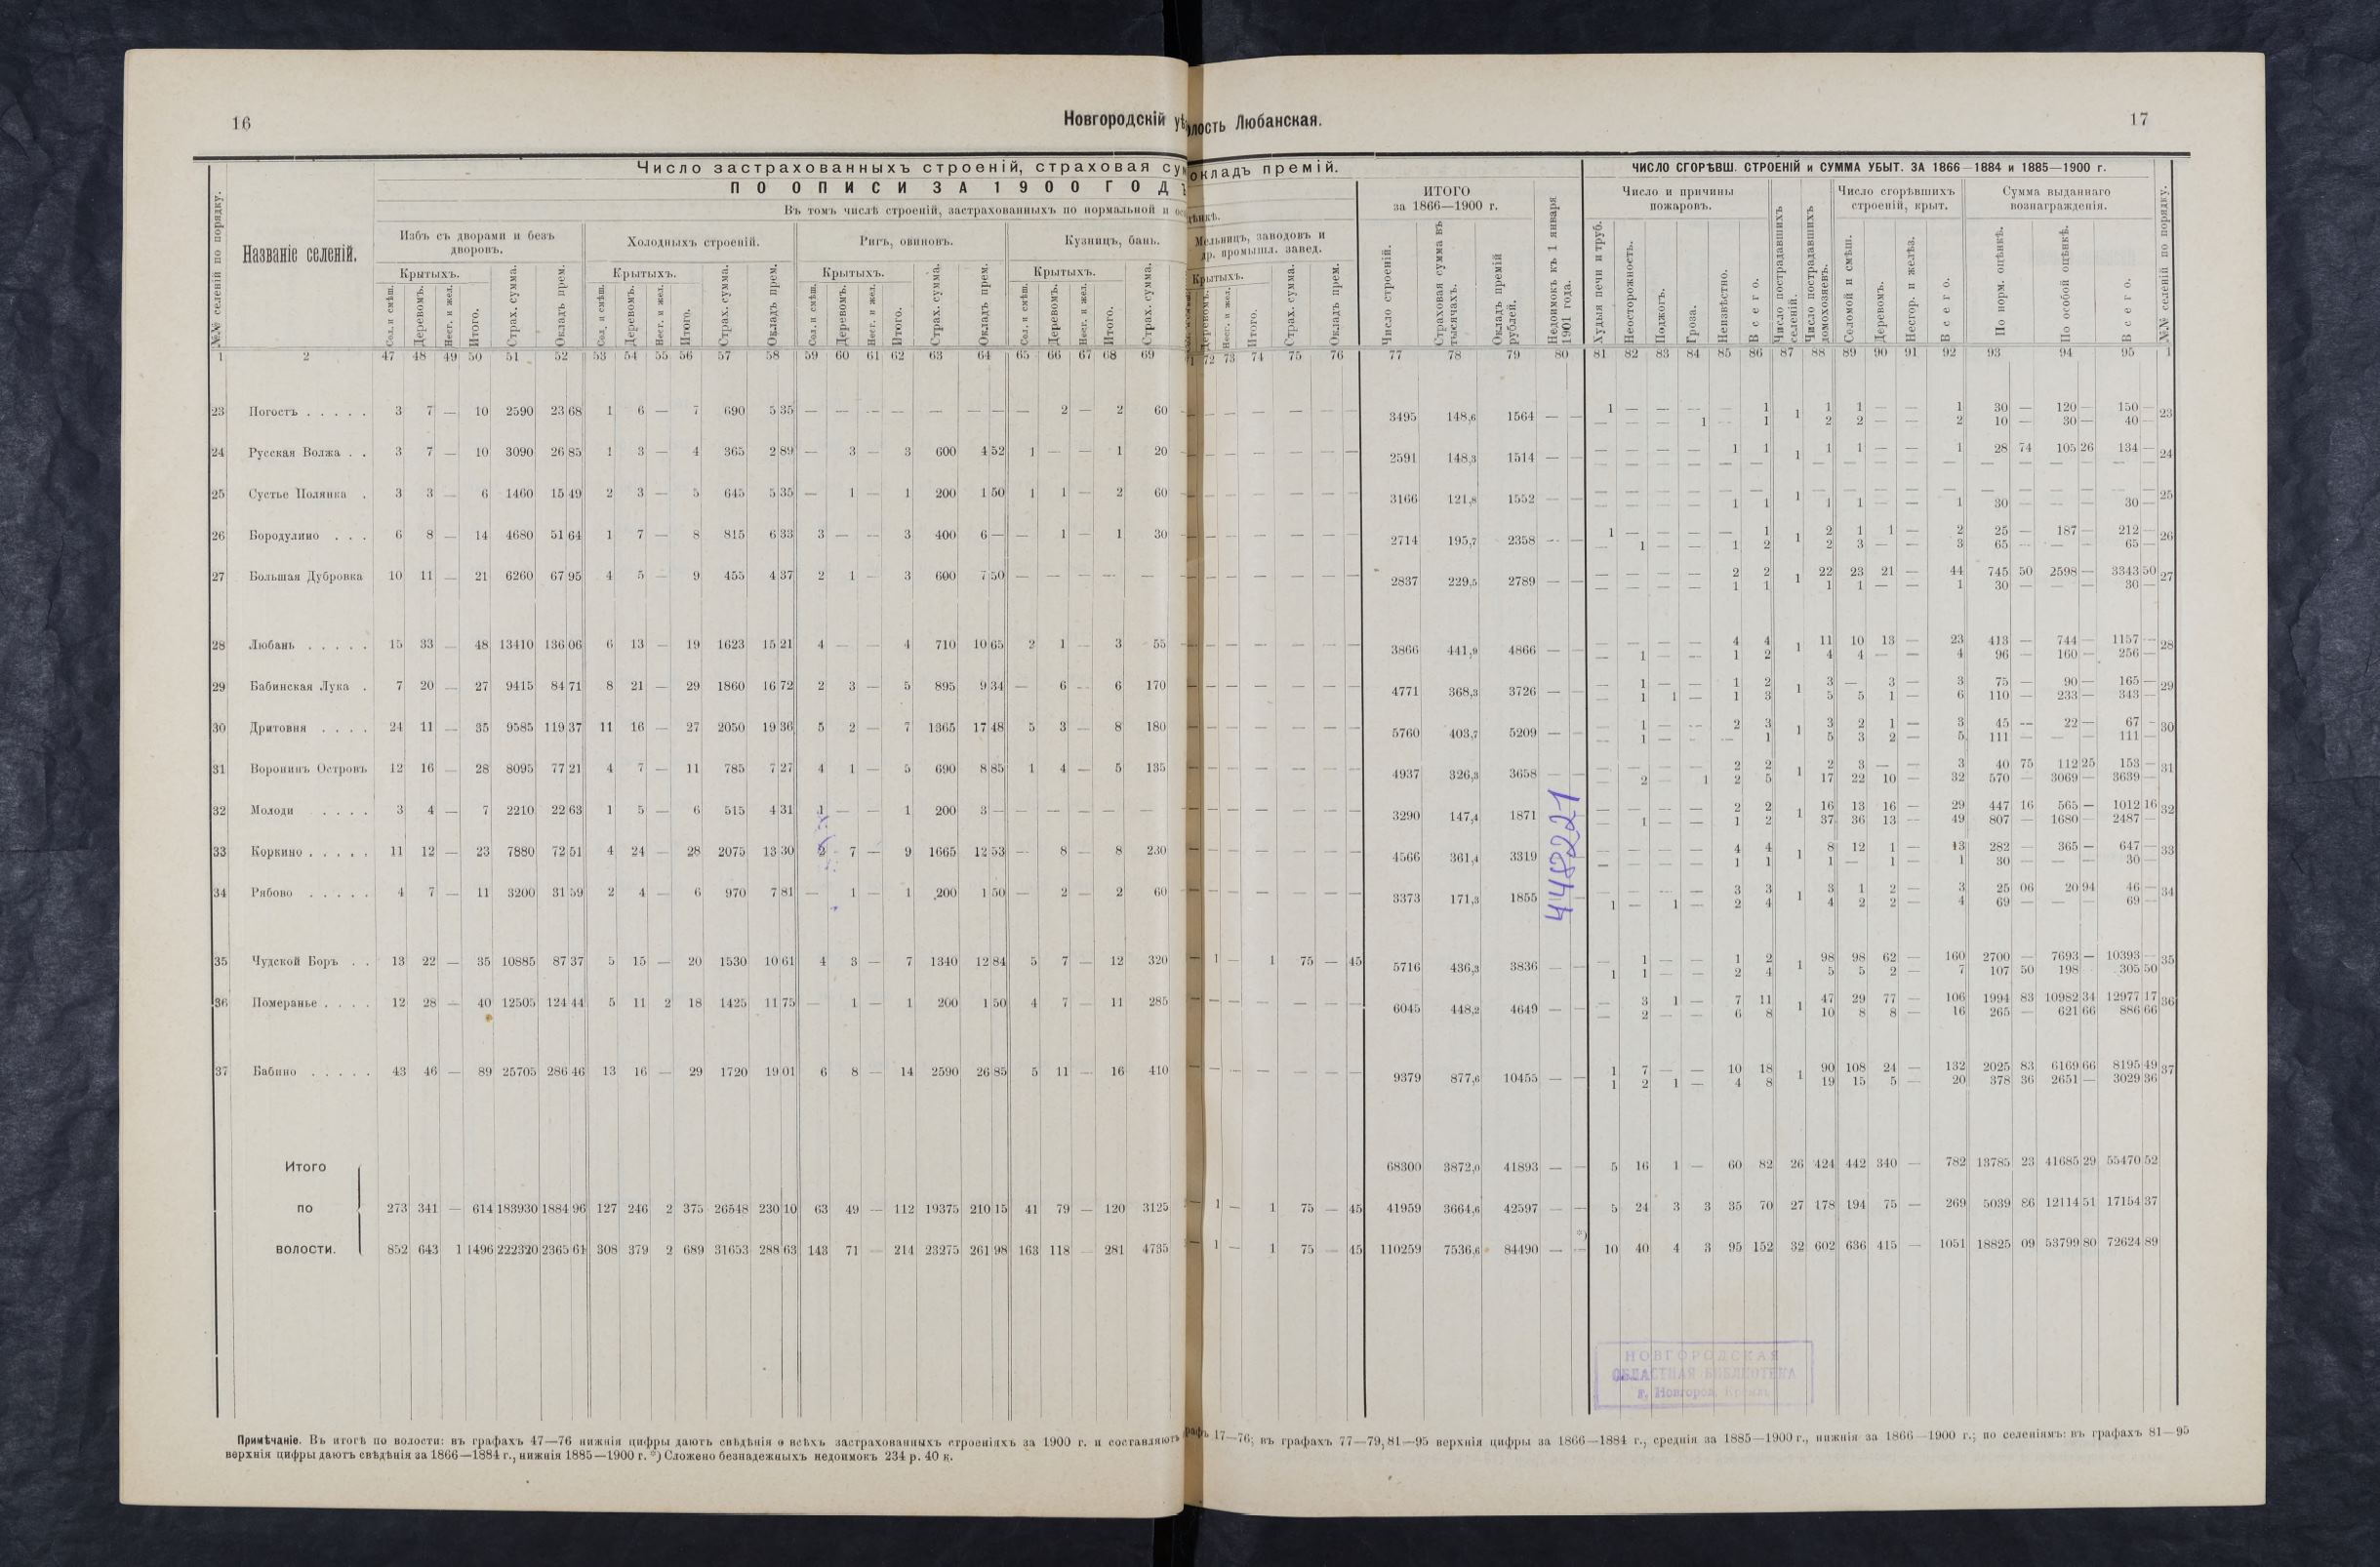 16
Новгородскій уѣ
лость Любанская.
17
Число застрахованныхъ строеній, страховая су
окладъ премій.
ПО ОПИСИ ЗА 1900 ГОД
Въ томъ числѣ строеній, застрахованныхъ по нормальной и ос
ѣнкѣ.
№№ селеній по порядку.
Названіе селеній.
Избъ съ дворами и безъ дворовъ.
Холодныхъ строеній.
Ригъ, овиновъ.
Кузницъ, бань.
Мельницъ, заводовъ и др. промышл. завед.
Крытыхъ. Крытыхъ. Крытыхъ. Крытыхъ. Крытыхъ.
Сол. и смѣш. Деревомъ. Несг. и жел. Итого. Страх. сумма. Окладъ прем.
Сол. и смѣш. Деревомъ. Несг. и жел. Итого. Страх. сумма. Окладъ прем.
Сол. и смѣш. Деревомъ. Несг. и жел. Итого. Страх. сумма. Окладъ прем.
Сол. и смѣш. Деревомъ. Несг. и жел. Итого. Страх. сумма.
Деревомъ. Несг. и жел. Итого. Страх. сумма. Окладъ прем.
ИТОГО
за 1866—1900 г.
Число строеній. Страховая сумма въ тысячахъ. Окладъ премій рублей.
Недоимокъ къ 1 января 1901 года.
ЧИСЛО СГОРѢВШ. СТРОЕНІЙ и СУММА УБЫТ. ЗА 1866—1884 и 1885—1900 г.
Число и причины пожаровъ.
Худыя печи и труб. Неосторожность. Поджогъ. Гроза. Неизвѣстно. Всего.
Число пострадавшихъ селеній.
Число пострадавшихъ домохозяевъ.
Число сгорѣвшихъ строеній, крыт.
Соломой и смѣш. Деревомъ. Несгор. и желѣз. Всего.
Сумма выданнаго вознагражденія.
По норм. оцѣнкѣ. По особой оцѣнкѣ. Всего.
№№ селеній по порядку.
1 2 47 48 49 50 51 52 53 54 55 56 57 58 59 60 61 62 63 64 65 66 67 68 69 72 73 74 75 76 77 78 79 80 81 82 83 84 85 86 87 88 89 90 91 92 93 94 95 1
23 Погостъ . . . . . 3 7 — 10 2590 23 68 1 6 — 7 690 5 35 — — — — — — — — 2 — 2 60 — — — — — — 3495 148,6 1564 — — 1 — — — — 1 1 1 1 — — 1 30 — 120 — 150 — 23
— — — 1 — 1 2 2 — — 2 10 — 30 — 40 —
24 Русская Волжа . . 3 7 — 10 3090 26 85 1 3 — 4 365 2 89 — 3 — 3 600 4 52 1 — — 1 20 — — — — — — 2591 148,3 1514 — — — — — — 1 1 1 1 1 — — 1 28 74 105 26 134 — 24
— — — — — — — — — — — — — — — — —
25 Сустье Полянка . 3 3 — 6 1460 15 49 2 3 — 5 645 5 35 — 1 — 1 200 1 50 1 1 — 2 60 — — — — — — 3166 121,8 1552 — — — — — — — — 1 — — — — — — — — — — — 25
— — — — 1 1 1 1 — — 1 30 — — — 30 —
26 Бородулино . . . 6 8 — 14 4680 51 64 1 7 — 8 815 6 33 3 — — 3 400 6 — — 1 — 1 30 — — — — — — 2714 195,7 2358 — — 1 — — — — 1 1 2 1 1 — 2 25 — 187 — 212 — 26
— 1 — — 1 2 2 3 — — 3 65 — — — 65 —
27 Большая Дубровка 10 11 — 21 6260 67 95 4 5 — 9 455 4 37 2 1 — 3 600 7 50 — — — — — — — — — — — 2837 229,5 2789 — — — — — — 2 2 1 22 23 21 — 44 745 50 2598 — 3343 50 27
— — — — 1 1 1 1 — — 1 30 — — — 30 —
28 Любань . . . . . 15 33 — 48 13410 136 06 6 13 — 19 1623 15 21 4 — — 4 710 10 65 2 1 — 3 55 — — — — — — 3866 441,9 4866 — — — — — — 4 4 1 11 10 13 — 23 413 — 744 — 1157 — 28
— 1 — — 1 2 4 4 — — 4 96 — 160 — 256 —
29 Бабинская Лука . 7 20 — 27 9415 84 71 8 21 — 29 1860 16 72 2 3 — 5 895 9 34 — 6 — 6 170 — — — — — — 4771 368,3 3726 — — — 1 — — 1 2 1 3 — 3 — 3 75 — 90 — 165 — 29
— 1 1 — 1 3 5 5 1 — 6 110 — 233 — 343 —
30 Дритовня . . . . 24 11 — 35 9585 119 37 11 16 — 27 2050 19 36 5 2 — 7 1365 17 48 5 3 — 8 180 — — — — — — 5760 403,7 5209 — — — 1 — — 2 3 1 3 2 1 — 3 45 — 22 — 67 — 30
— 1 — — — 1 5 3 2 — 5 111 — — — 111 —
31 Воронинъ Островъ 12 16 — 28 8095 77 21 4 7 — 11 785 7 27 4 1 — 5 690 8 85 1 4 — 5 135 — — — — — — 4937 326,3 3658 — — — — — — 2 2 1 2 3 — — 3 40 75 112 25 153 — 31
— 2 — 1 2 5 17 22 10 — 32 570 — 3069 — 3639 —
32 Молоди . . . . 3 4 — 7 2210 22 63 1 5 — 6 515 4 31 1 — — 1 200 3 — — — — — — — — — — — — 3290 147,4 1871 — — — — 2 2 1 16 13 16 — 29 447 16 565 — 1012 16 32
— 1 — — 1 2 37 36 13 — 49 807 — 1680 — 2487 —
33 Коркино . . . . . 11 12 — 23 7880 72 51 4 24 — 28 2075 13 30 2 7 — 9 1665 12 53 — 8 — 8 230 — — — — — — 4566 361,4 3319 — — — — 4 4 1 8 12 1 — 13 282 — 365 — 647 — 33
— — — — 1 1 1 — 1 — 1 30 — — — 30 —
34 Рябово . . . . . 4 7 — 11 3200 31 59 2 4 — 6 970 7 81 — 1 — 1 200 1 50 — 2 — 2 60 — — — — — — 3373 171,3 1855 — — — — — 3 3 1 3 1 2 — 3 25 06 20 94 46 — 34
1 — 1 — 2 4 4 2 2 — 4 69 — — — 69 —
4448221
35 Чудской Боръ . . 13 22 — 35 10885 87 37 5 15 — 20 1530 10 61 4 3 — 7 1340 12 84 5 7 — 12 320 — 1 — 1 75 — 45 5716 436,3 3836 — — — 1 — — 1 2 1 98 98 62 — 160 2700 — 7693 — 10393 — 35
1 1 — — 2 4 5 5 2 — 7 107 50 198 305 50
36 Померанье . . . . 12 28 — 40 12505 124 44 5 11 2 18 1425 11 75 — 1 — 1 200 1 50 4 7 — 11 285 — — — — — — 6045 448,2 4649 — — — 3 1 — 7 11 1 47 29 77 — 106 1994 83 10982 34 12977 17 36
— 2 — — 6 8 10 8 8 — 16 265 — 621 66 886 66
37 Бабино . . . . . 43 46 — 89 25705 286 46 13 16 — 29 1720 19 01 6 8 — 14 2590 26 85 5 11 — 16 410 — — — — — — 9379 877,6 10455 — — 1 7 — — 10 18 1 90 108 24 — 132 2025 83 6169 66 8195 49 37
1 2 1 — 4 8 19 15 5 — 20 378 36 2651 — 3029 36
Итого 68300 3872,0 41893 — — 5 16 1 — 60 82 26 424 442 340 — 782 13785 23 41685 29 55470 52
по 273 341 — 614 183930 1884 96 127 246 2 375 26548 230 10 63 49 — 112 19375 210 15 41 79 — 120 3125 — 1 — 1 75 — 45 41959 3664,6 42597 — — 5 24 3 3 35 70 27 178 194 75 — 269 5039 86 12114 51 17154 37
волости. 852 643 1 1496 222320 2365 61 308 379 2 689 31653 288 63 143 71 — 214 23275 261 98 163 118 — 281 4735 — 1 — 1 75 — 45 110259 7536,6 84490 — — *) 10 40 4 3 95 152 32 602 636 415 — 1051 18825 09 53799 80 72624 89
НОВГОРОДСКАЯ
ОБЛАСТНАЯ БИБЛИОТЕКА
г. Новгород, Кремль
Примѣчаніе. Въ итогѣ по волости: въ графахъ 47—76 нижнія цифры даютъ свѣдѣнія о всѣхъ застрахованныхъ строеніяхъ за 1900 г. и составляютъ графъ 17—76; въ графахъ 77—79, 81—95 верхнія цифры за 1866—1884 г., среднія за 1885—1900 г., нижнія за 1866—1900 г.; по селеніямъ: въ графахъ 81—95
верхнія цифры даютъ свѣдѣнія за 1866—1884 г., нижнія 1885—1900 г. *) Сложено безнадежныхъ недоимокъ 234 р. 40 к.